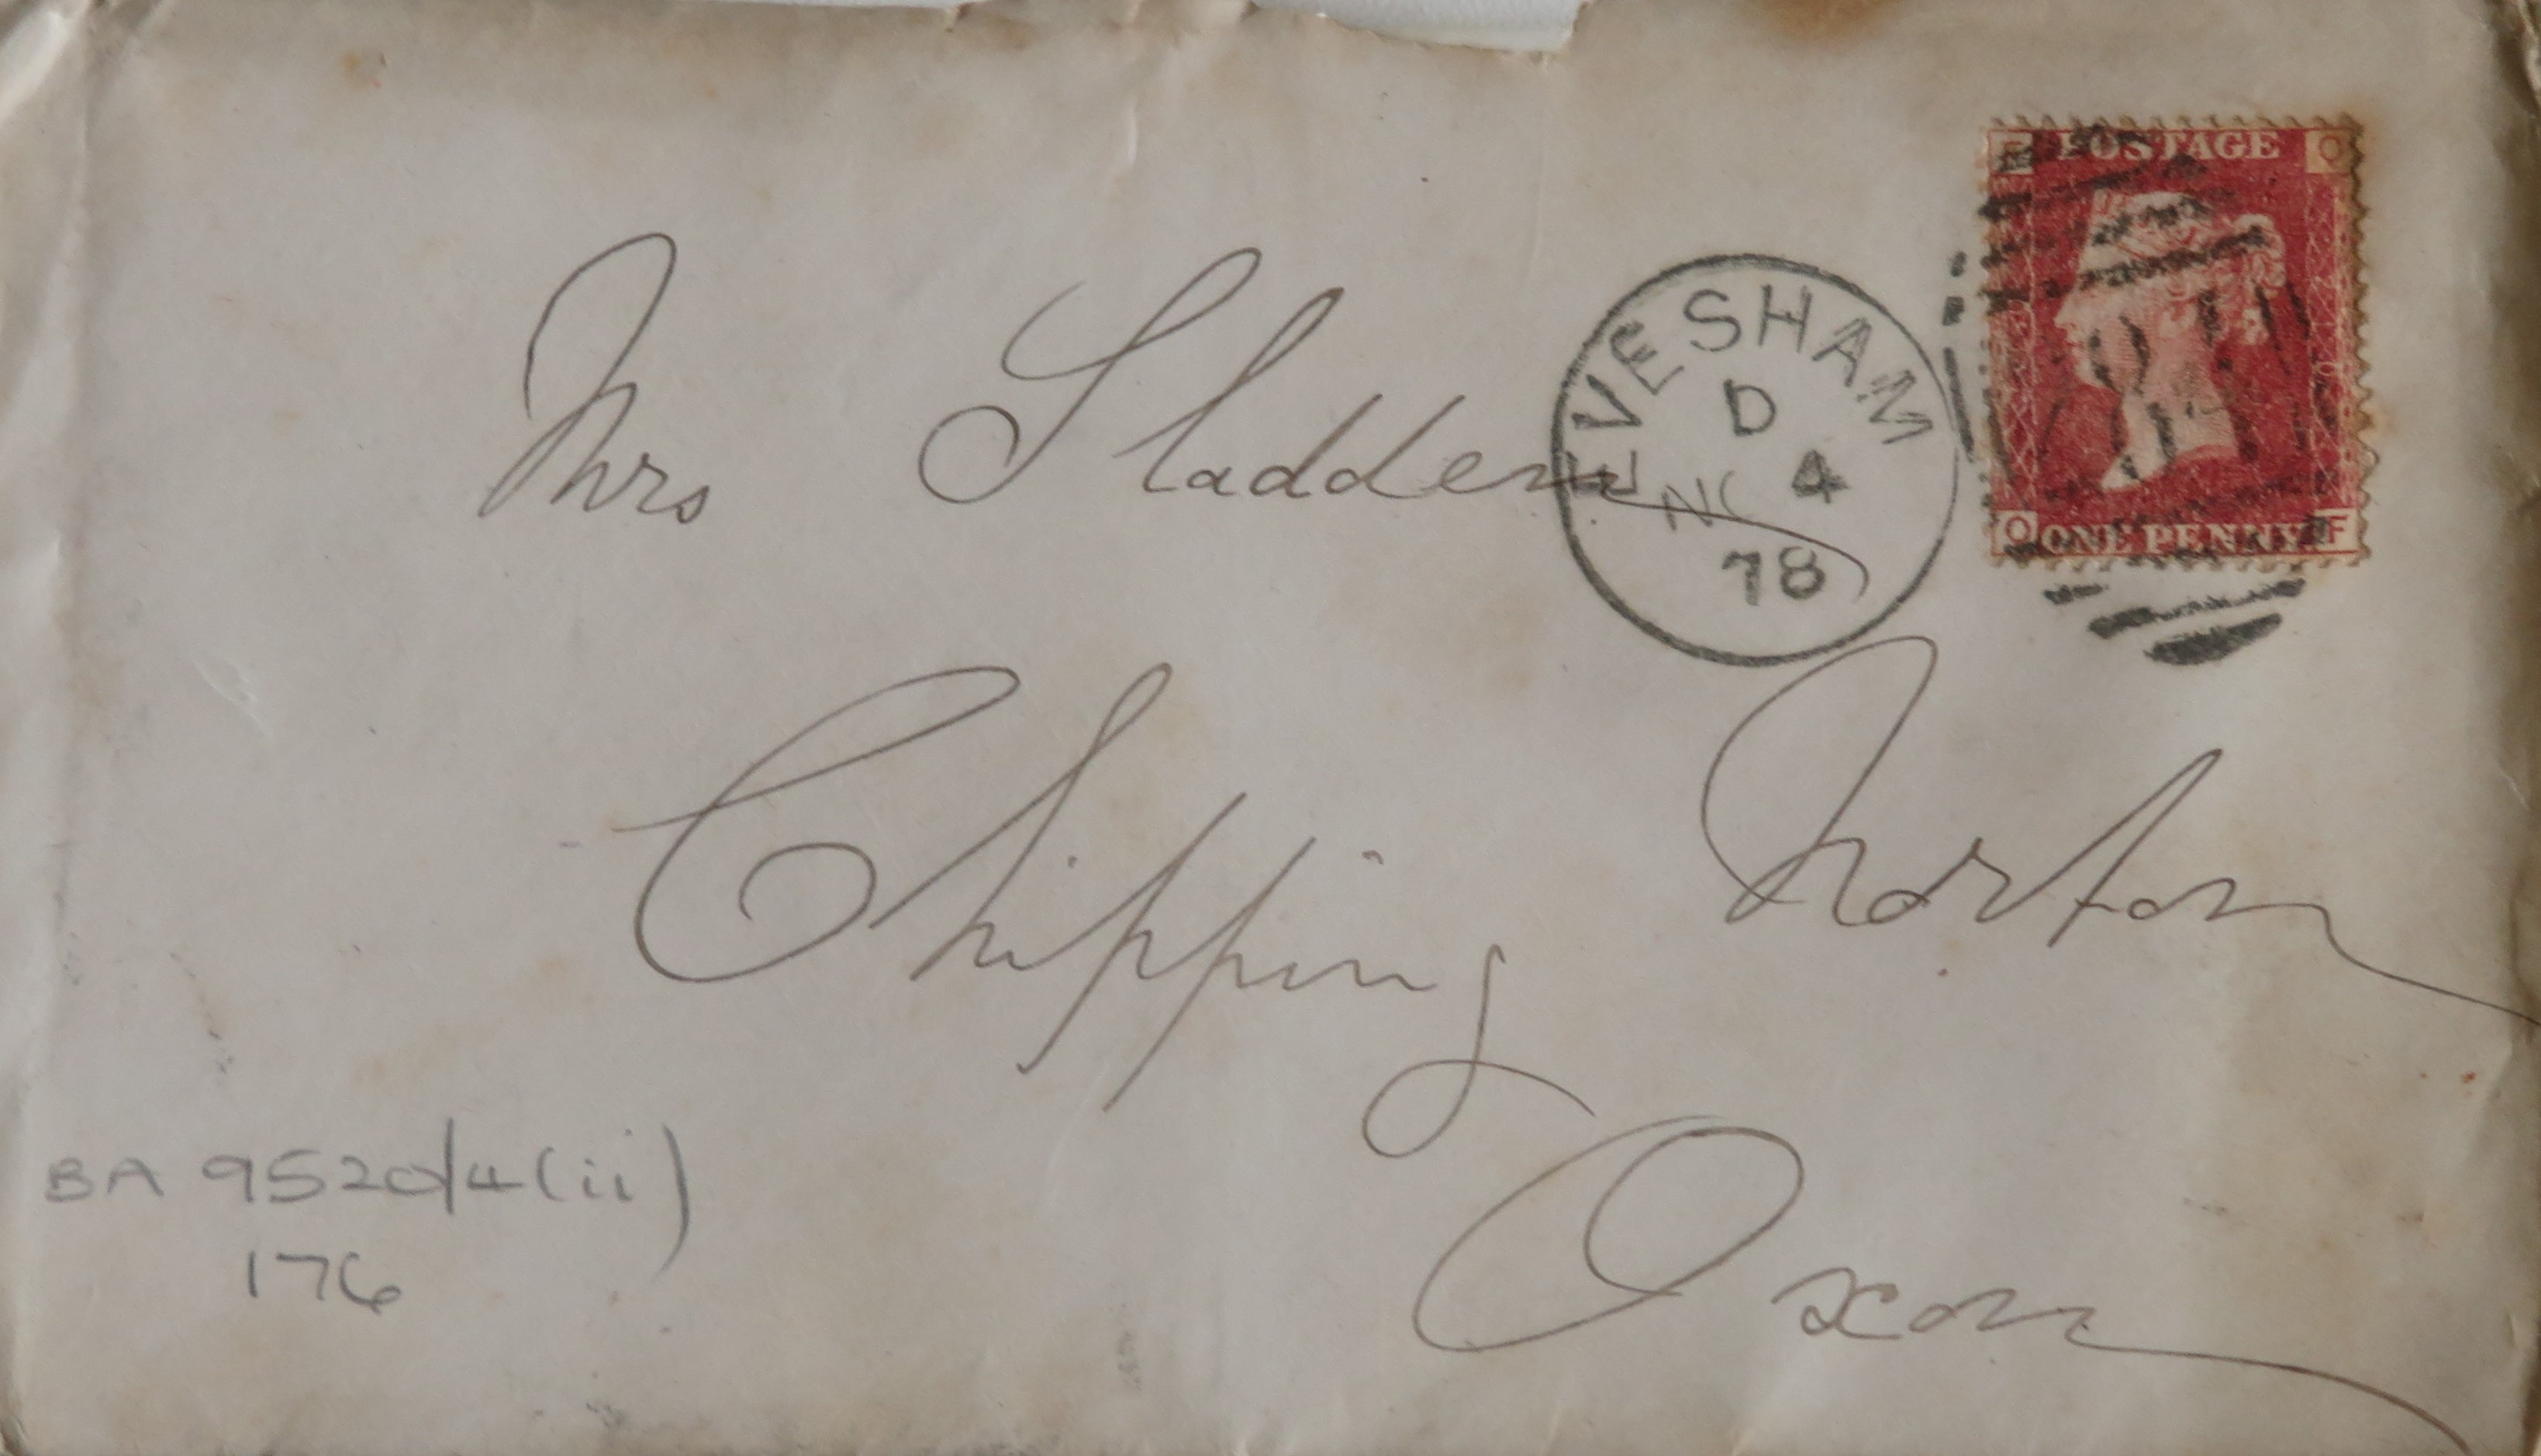 POSTAGE
F O
EVESHAM
D
4
78
O ONE PENNY F
Mrs Sladden
Chipping Norton
Oxon
BA 9520/4(ii)
176